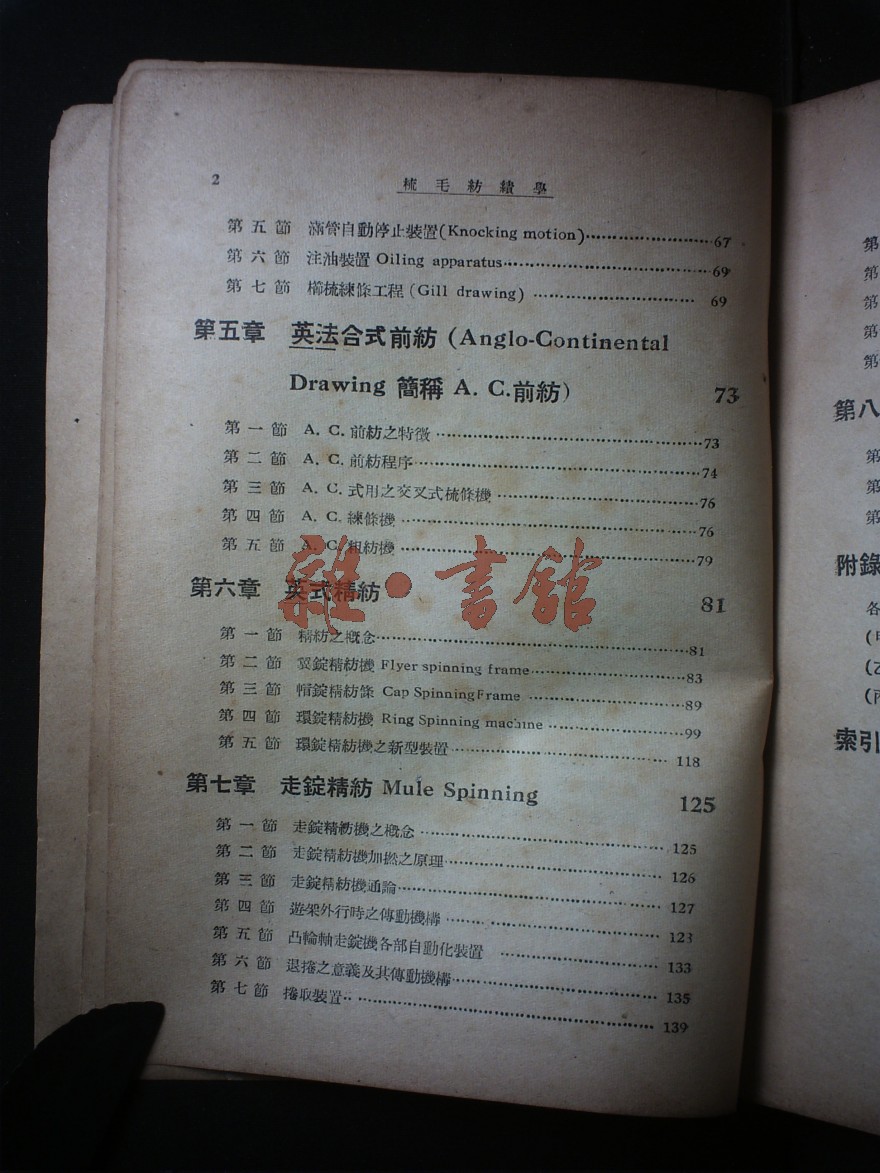 2 梳毛紡績學
第五節 滿管自動停止裝置(Knocking motion)........................67
第六節 注油裝置 Oiling apparatus........................69
第七節 櫛梳練條工程 (Gill drawing) ........................ 69
第五章 英法合式前紡 (Anglo-Continental
Drawing 簡稱 A. C.前紡) 73
第一節 A. C. 前紡之特徵 ........................73
第二節 A. C. 前紡程序........................74
第三節 A. C. 式用之交叉式梳條機 ........................76
第四節 A. C. 練條機 ........................76
第五節 A. C. 粗紡機 ........................79
雜·書館
第六章 英式精紡 81
第一節 精紡之概念........................81
第二節 翼錠精紡機 Flyer spinning frame........................83
第三節 帽錠精紡條 Cap SpinningFrame ........................89
第四節 環錠精紡機 Ring Spinning machine ........................99
第五節 環錠精紡機之新型裝置........................ 118
第七章 走錠精紡 Mule Spinning 125
第一節 走錠精紡機之概念 ........................ 125
第二節 走錠精紡機加撚之原理........................ 126
第三節 走錠精紡機通論........................ 127
第四節 遊架外行時之傳動機構 ........................ 123
第五節 凸輪軸走錠機各部自動化裝置 ........................ 133
第六節 退捲之意義及其傳動機構........................ 135
第七節 捲取裝置.. ........................ 139
第
第
第
第
第
第八
第
第
第
附錄
各
(
(乙
(丙
索引